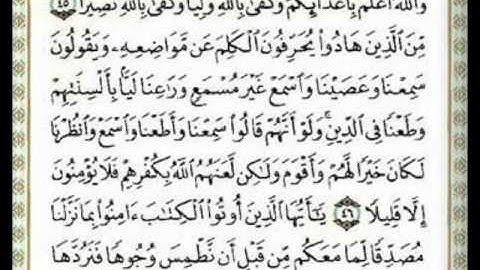 وَٱللَّهُ أَعْلَمُ بِأَعْدَآئِكُمْ وَكَفَىٰ بِٱللَّهِ وَلِيًّا وَكَفَىٰ بِٱللَّهِ نَصِيرًا ٤٥
مِّنَ ٱلَّذِينَ هَادُوا۟ يُحَرِّفُونَ ٱلْكَلِمَ عَن مَّوَاضِعِهِۦ وَيَقُولُونَ
سَمِعْنَا وَعَصَيْنَا وَٱسْمَعْ غَيْرَ مُسْمَعٍ وَرَٰعِنَا لَيًّۢا بِأَلْسِنَتِهِمْ
وَطَعْنًا فِى ٱلدِّينِ ۚ وَلَوْ أَنَّهُمْ قَالُوا۟ سَمِعْنَا وَأَطَعْنَا وَٱسْمَعْ وَٱنظُرْنَا
لَكَانَ خَيْرًا لَّهُمْ وَأَقْوَمَ وَلَٰكِن لَّعَنَهُمُ ٱللَّهُ بِكُفْرِهِمْ فَلَا يُؤْمِنُونَ
إِلَّا قَلِيلًا ٤٦ يَٰٓأَيُّهَا ٱلَّذِينَ أُوتُوا۟ ٱلْكِتَٰبَ ءَامِنُوا۟ بِمَا نَزَّلْنَا
مُصَدِّقًا لِّمَا مَعَكُم مِّن قَبْلِ أَن نَّطْمِسَ وُجُوهًا فَنَرُدَّهَا